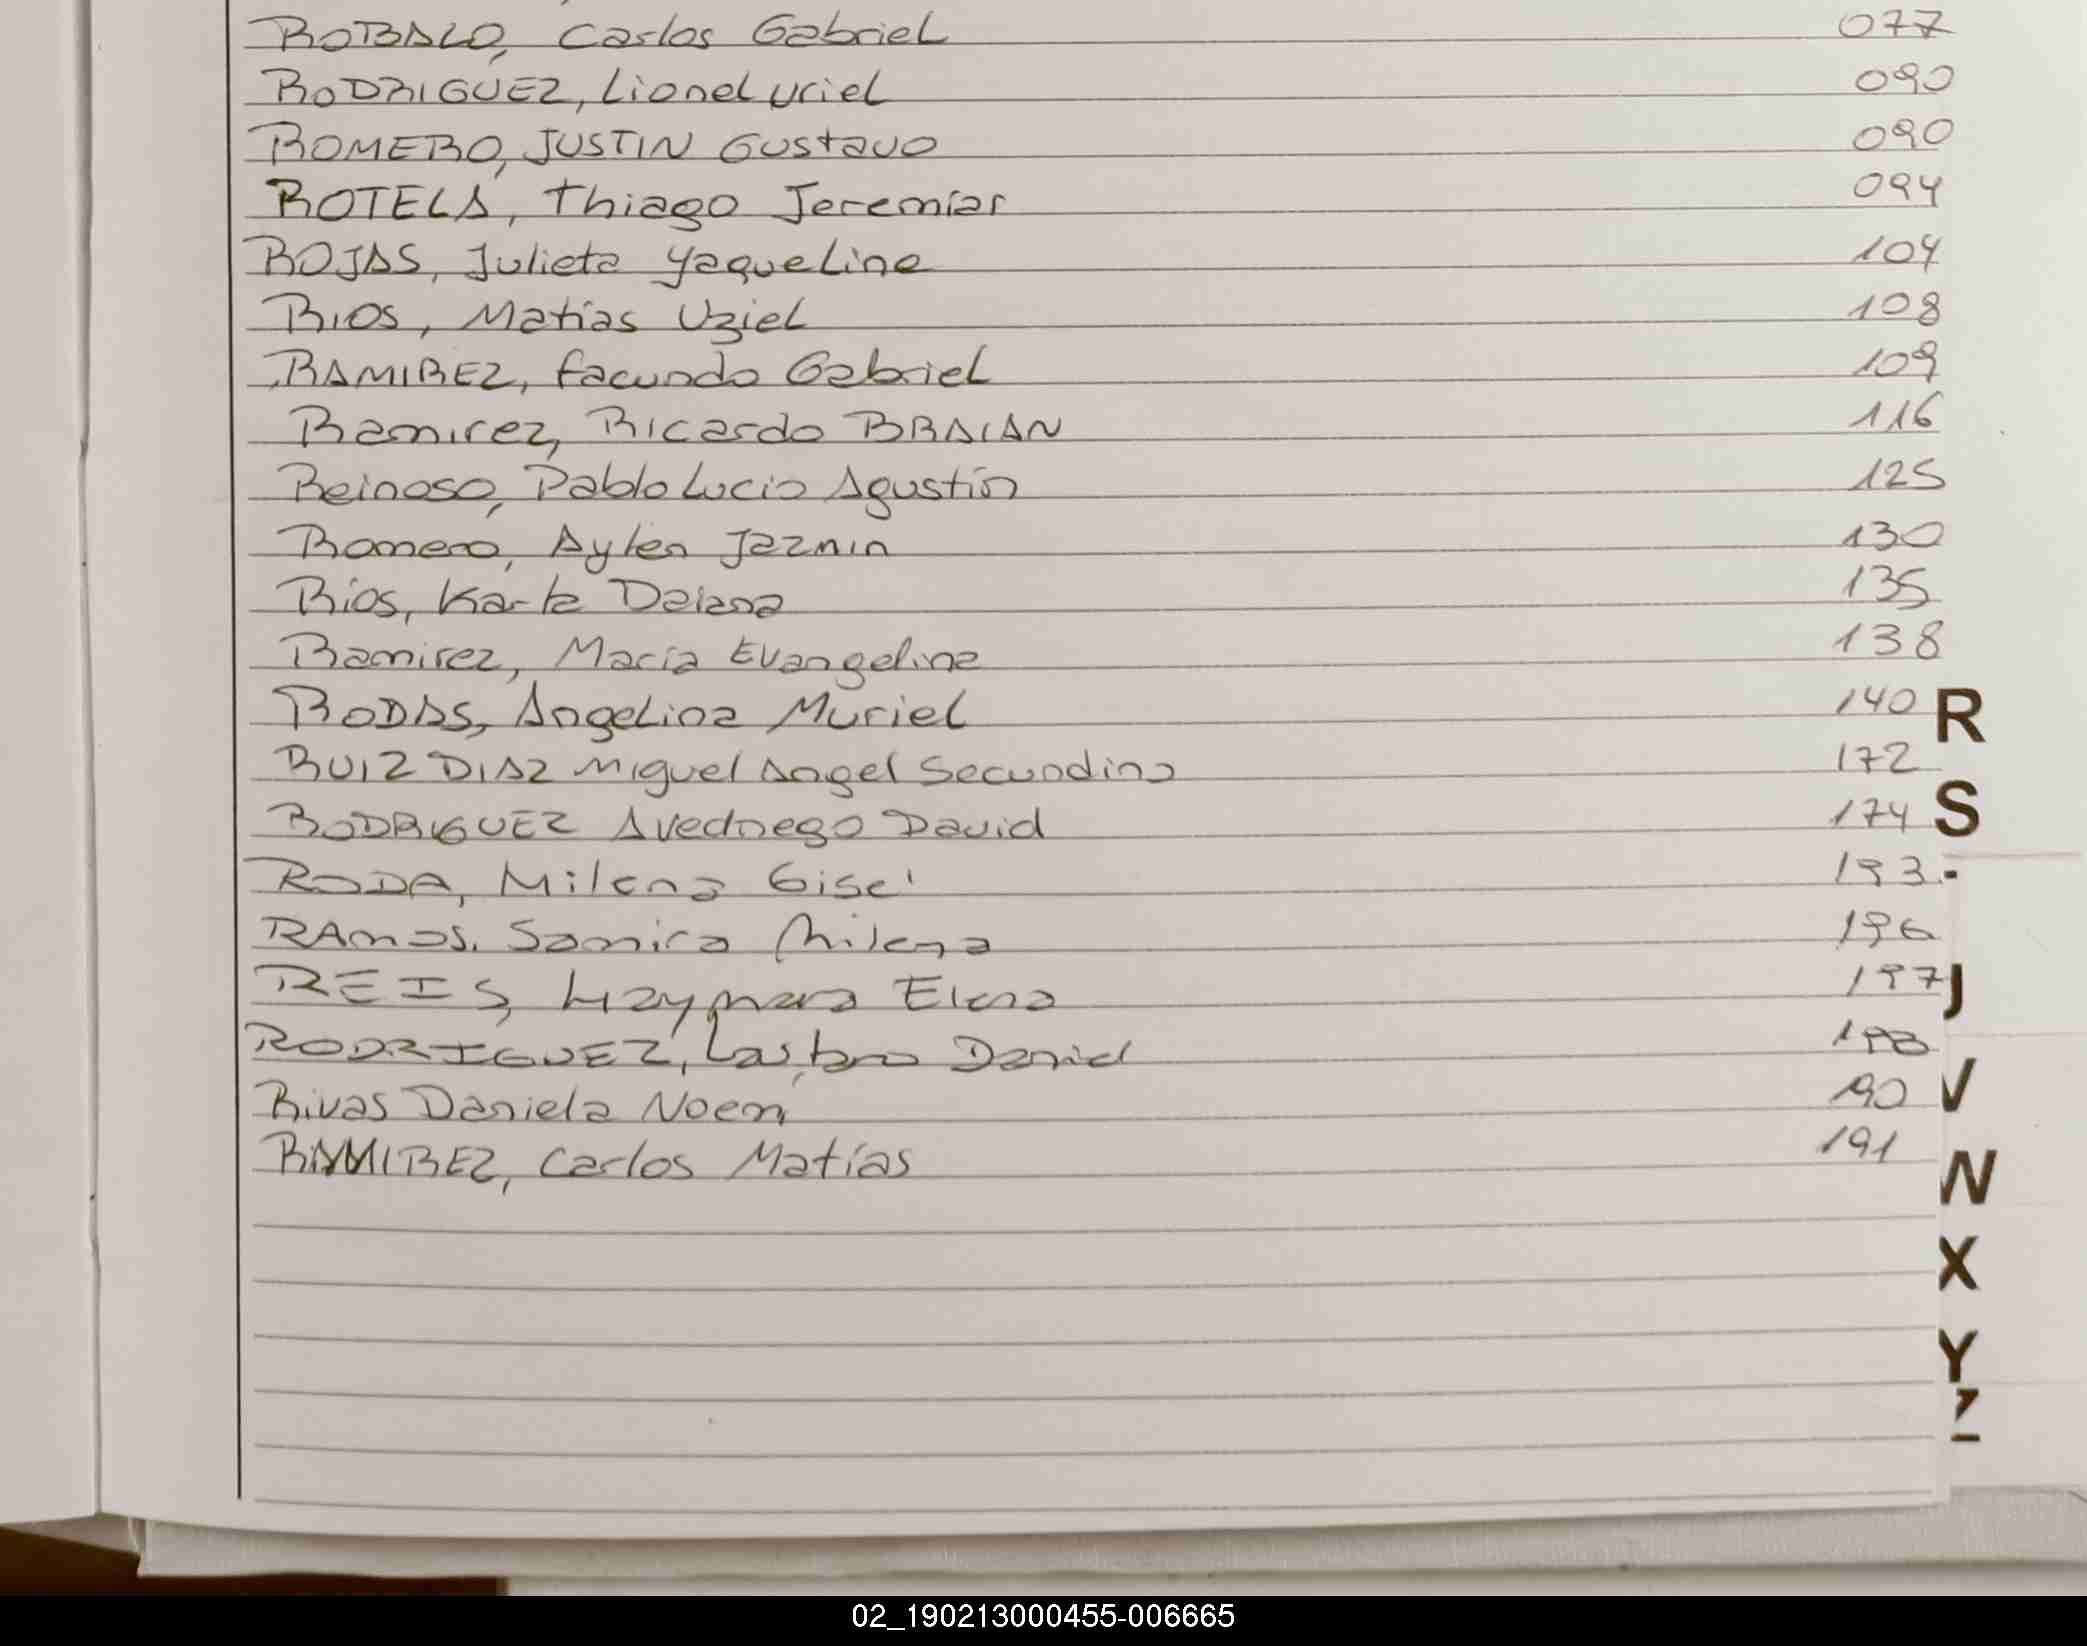 ROBALO, Carlos Gabriel 077
RODRIGUEZ, Lionel Uriel 090
ROMERO, JUSTIN Gustavo 090
ROTELA, Thiago Jeremías 094
ROJAS, Julieta Yaqueline 104
RIOS, Matías Uziel 108
RAMIREZ, Facundo Gabriel 109
Ramirez, Ricardo BRAIAN 116
Reinoso, Pablo Lucio Agustín 125
Romero, Aylen Jazmin 130
Ríos, Karla Daiana 135
Ramirez, María Evangelina 138
RODAS, Angelina Muriel 140
RUIZ DIAZ Miguel Angel Secundino 172
RODRIGUEZ Avednego David 174
RODA, Milena Gisel 193.
RAMOS, Samira Milena 196
REIS, Elena 197
RODRIGUEZ, Daniel
Rivas Daniela Noemi 190
RAMIREZ, Carlos Matías 191
R
S
J
V
W
X
Y
Z
02_190213000455-006665